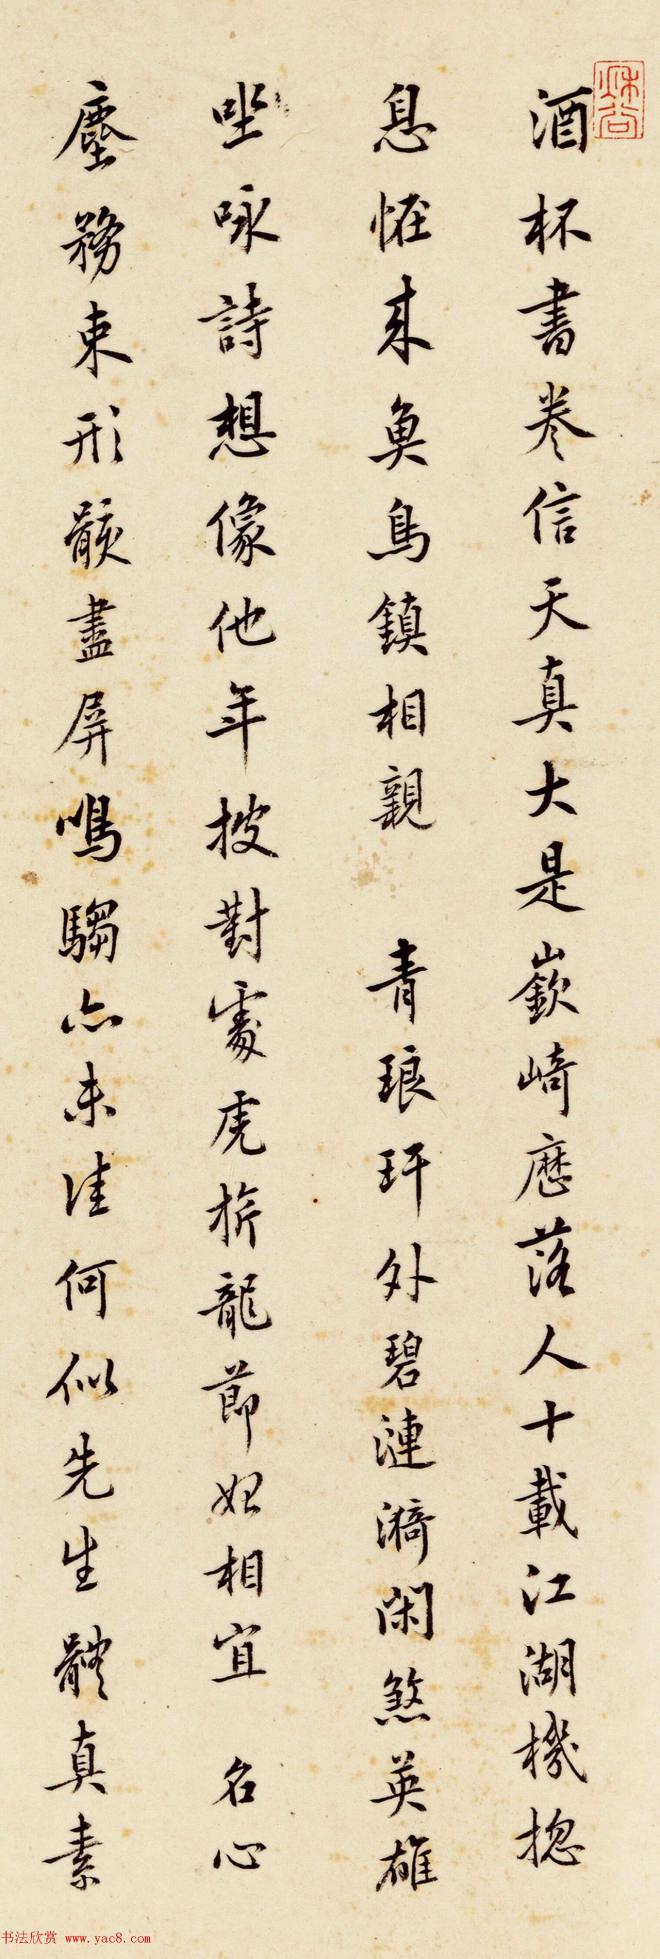 酒杯書卷信天真大是嶔崎歷落人十載江湖機揔
息怪來魚鳥鎮相親 青琅玕外碧漣漪閑煞英雄
坐咏詩想像他年披對處虎旂龍節始相宜 名心
塵務束形骸盡屏鳴騶亦未佳何似先生體真素
书法欣赏 www.yac8.com